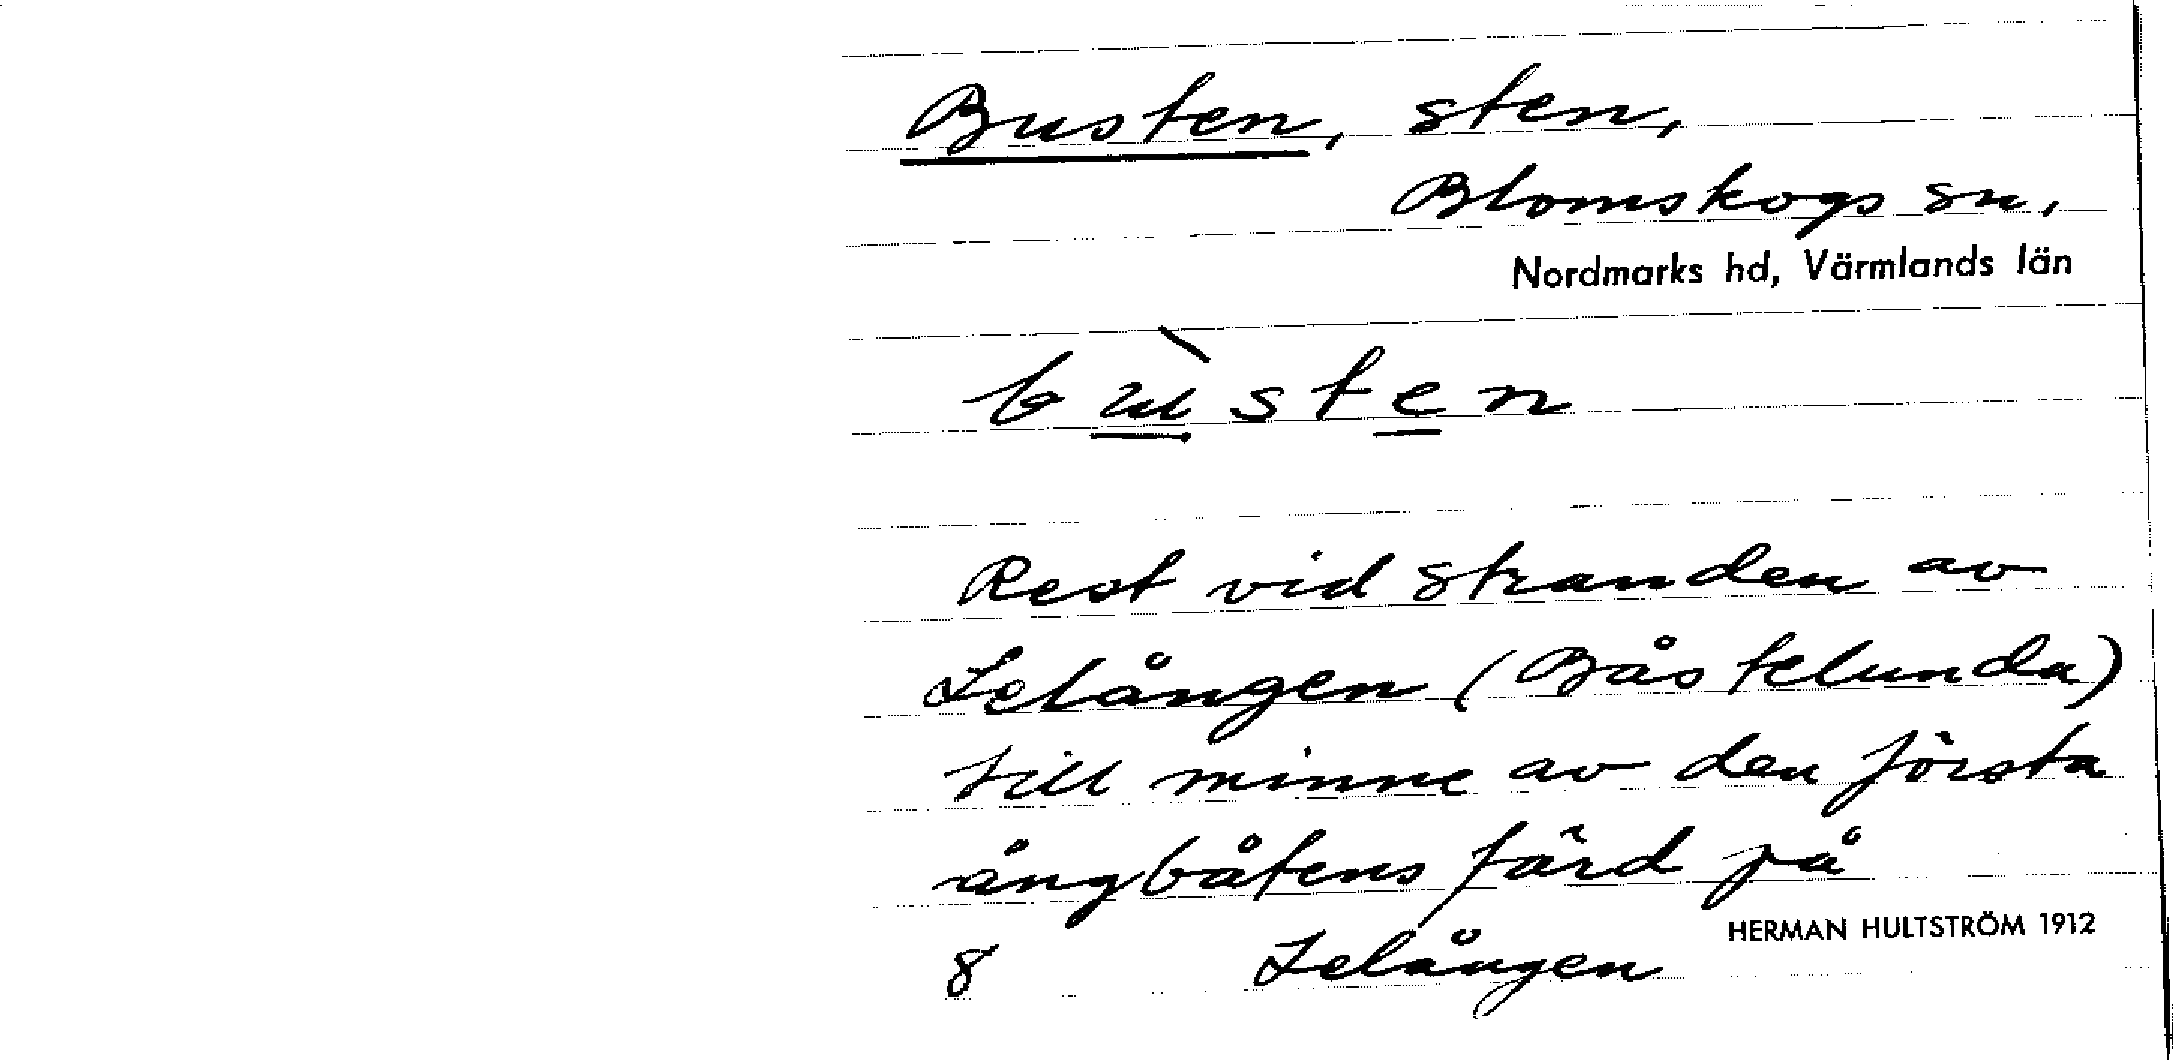 Busten, sten,
Blomskogs sn,
Nordmarks hd, Värmlands län
bùsten
Rest vid stranden av
Lelången (Båstelunda)
till minne av den första
ångbåtens färd på
8 Lelången
HERMAN HULTSTRÖM 1912